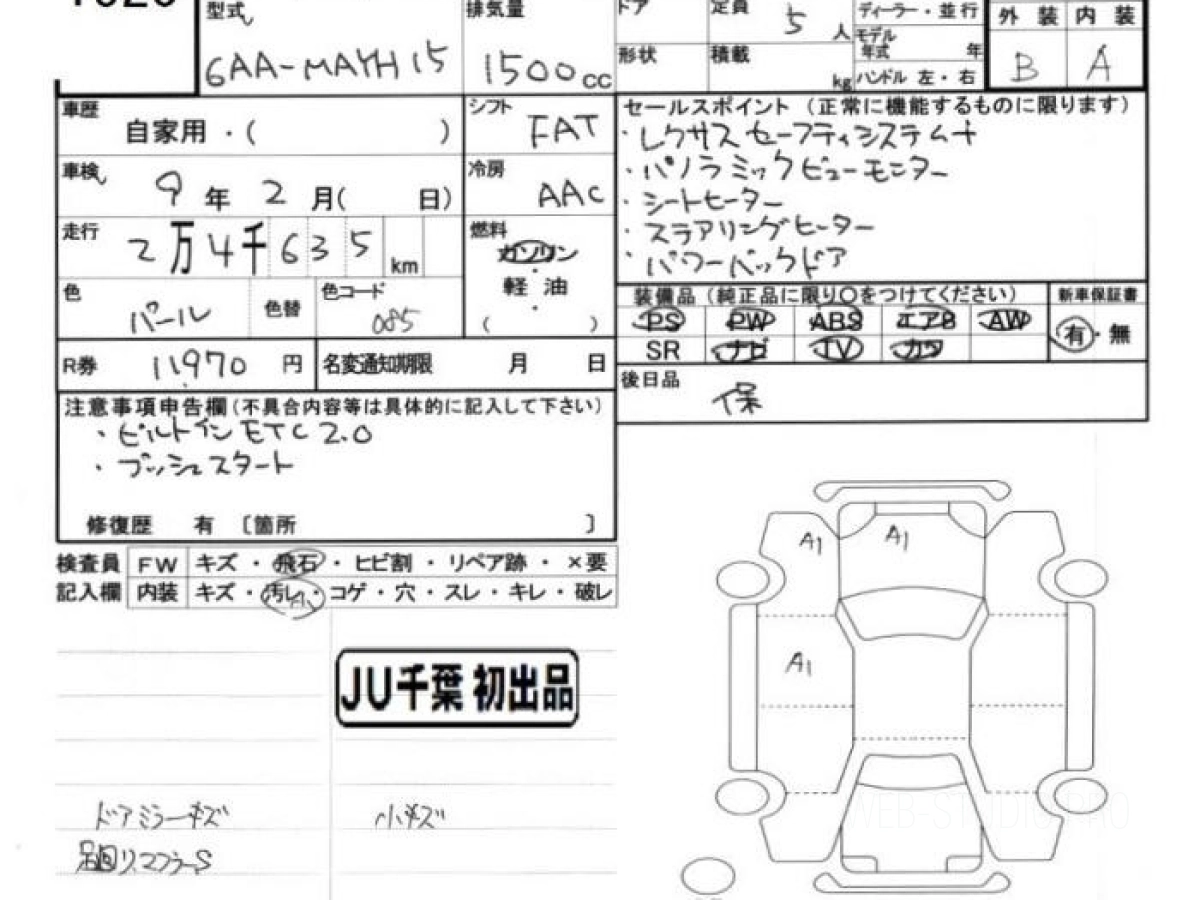 型式
6AA-MAYH15
排気量
1500cc
ドア
定員
5人
形状
積載
kg
ディーラー・並行
モデル年式 年
ハンドル 左・右
外装 内装
B A
車歴
自家用・( )
シフト
FAT
車検
9年2月( 日)
冷房
AAC
走行
2万4千635km
燃料
ガソリン
・
軽油
・
( )
色
パール
色替
色コード
085
R券 11,970円
名変通知期限 月 日
セールスポイント (正常に機能するものに限ります)
・レクサスセーフティシステム+
・パノラミックビューモニター
・シートヒーター
・ステアリングヒーター
・パワーバックドア
装備品 (純正品に限り○をつけてください)
新車保証書
PS PW ABS エアB AW
有・無
SR ナビ TV カワ
後日品
保
注意事項申告欄(不具合内容等は具体的に記入して下さい)
・ビルトインETC2.0
・プッシュスタート
修復歴 有 〔箇所 〕
検査員 FW キズ・飛石・ヒビ割・リペア跡・×要
記入欄 内装 キズ・汚レ・コゲ・穴・スレ・キレ・破レ
A
JU千葉 初出品
ドアミラーキズ
小キズ
足回り、マフラーS
A1
A1
A1